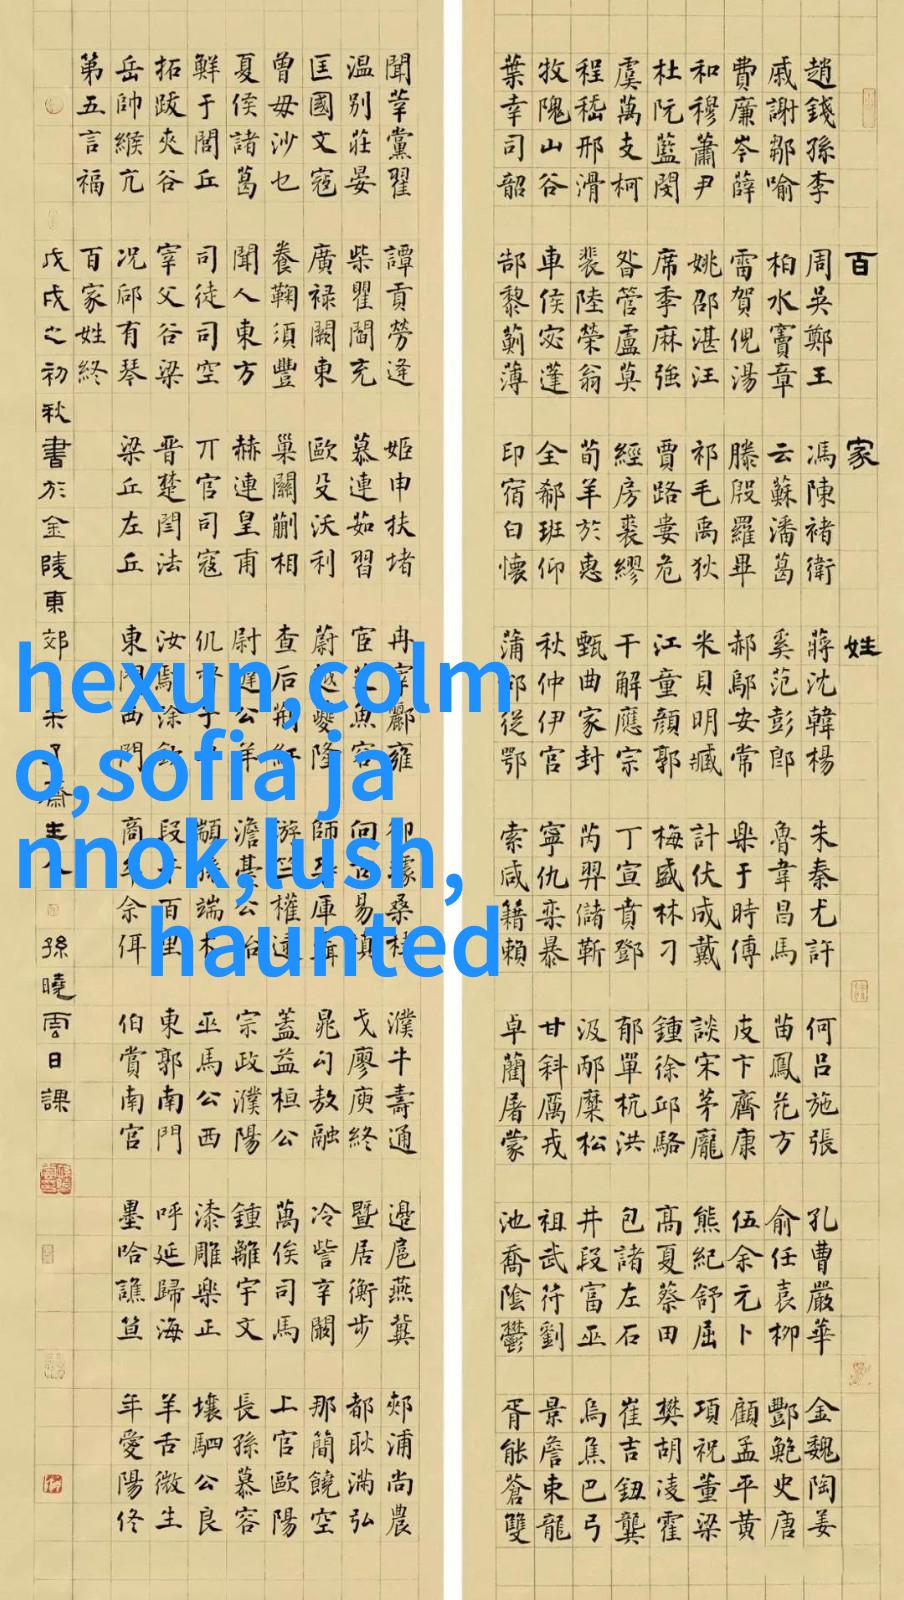 百家姓
趙錢孫李 周吳鄭王 馮陳褚衛 蔣沈韓楊 朱秦尤許 何呂施張 孔曹嚴華 金魏陶姜
戚謝鄒喻 柏水竇章 云蘇潘葛 奚范彭郎 魯韋昌馬 苗鳳花方 俞任袁柳 酆鮑史唐
費廉岑薛 雷賀倪湯 滕殷羅畢 郝鄔安常 樂于時傅 皮卞齊康 伍余元卜 顧孟平黃
和穆蕭尹 姚邵湛汪 祁毛禹狄 米貝明臧 計伏成戴 談宋茅龐 熊紀舒屈 項祝董梁
杜阮藍閔 席季麻強 賈路婁危 江童顏郭 梅盛林刁 鍾徐邱駱 高夏蔡田 樊胡凌霍
虞萬支柯 昝管盧莫 經房裘繆 干解應宗 丁宣賁鄧 郁單杭洪 包諸左石 崔吉鈕龔
程嵇邢滑 裴陸榮翁 荀羊於惠 甄曲家封 芮羿儲靳 汲邴糜松 井段富巫 烏焦巴弓
牧隗山谷 車侯宓蓬 全郗班仰 秋仲伊宮 寧仇欒暴 甘斜厲戎 祖武符劉 景詹束龍
葉幸司韶 郜黎薊薄 印宿白懷 蒲邰從鄂 索咸籍賴 卓藺屠蒙 池喬陰鬱 胥能蒼雙
聞莘黨翟 譚貢勞逄 姬申扶堵 冉宰酈雍 郤璩桑桂 濮牛壽通 邊扈燕冀 郟浦尚農
温別莊晏 柴瞿閻充 慕連茹習 宦艾魚容 向古易慎 戈廖庾終 暨居衡步 都耿滿弘
匡國文寇 廣祿闕東 歐殳沃利 蔚越夔隆 師鞏厙聶 晁勾敖融 冷訾辛闞 那簡饒空
曾毋沙乜 養鞠須豐 巢關蒯相 查后荊紅 游竺權逯 蓋益桓公 萬俟司馬 上官歐陽
夏侯諸葛 聞人東方 赫連皇甫 尉遲公羊 澹臺公冶 宗政濮陽 鍾離宇文 長孫慕容
鮮于閭丘 司徒司空 丌官司寇 仉督子車 顓孫端木 巫馬公西 漆雕樂正 壤駟公良
拓跋夾谷 宰父谷梁 晉楚閆法 汝鄢涂欽 段干百里 東郭南門 呼延歸海 羊舌微生
岳帥緱亢 况郈有琴 梁丘左丘 東門西門 商牟佘佴 伯賞南宮 墨哈譙笪 年愛陽佟
第五言福 百家姓終
戊戌之初秋書於金陵東郊 了齋主人 孫曉雲日課
hexun,colm
o,sofia ja
nnok,lush,
haunted